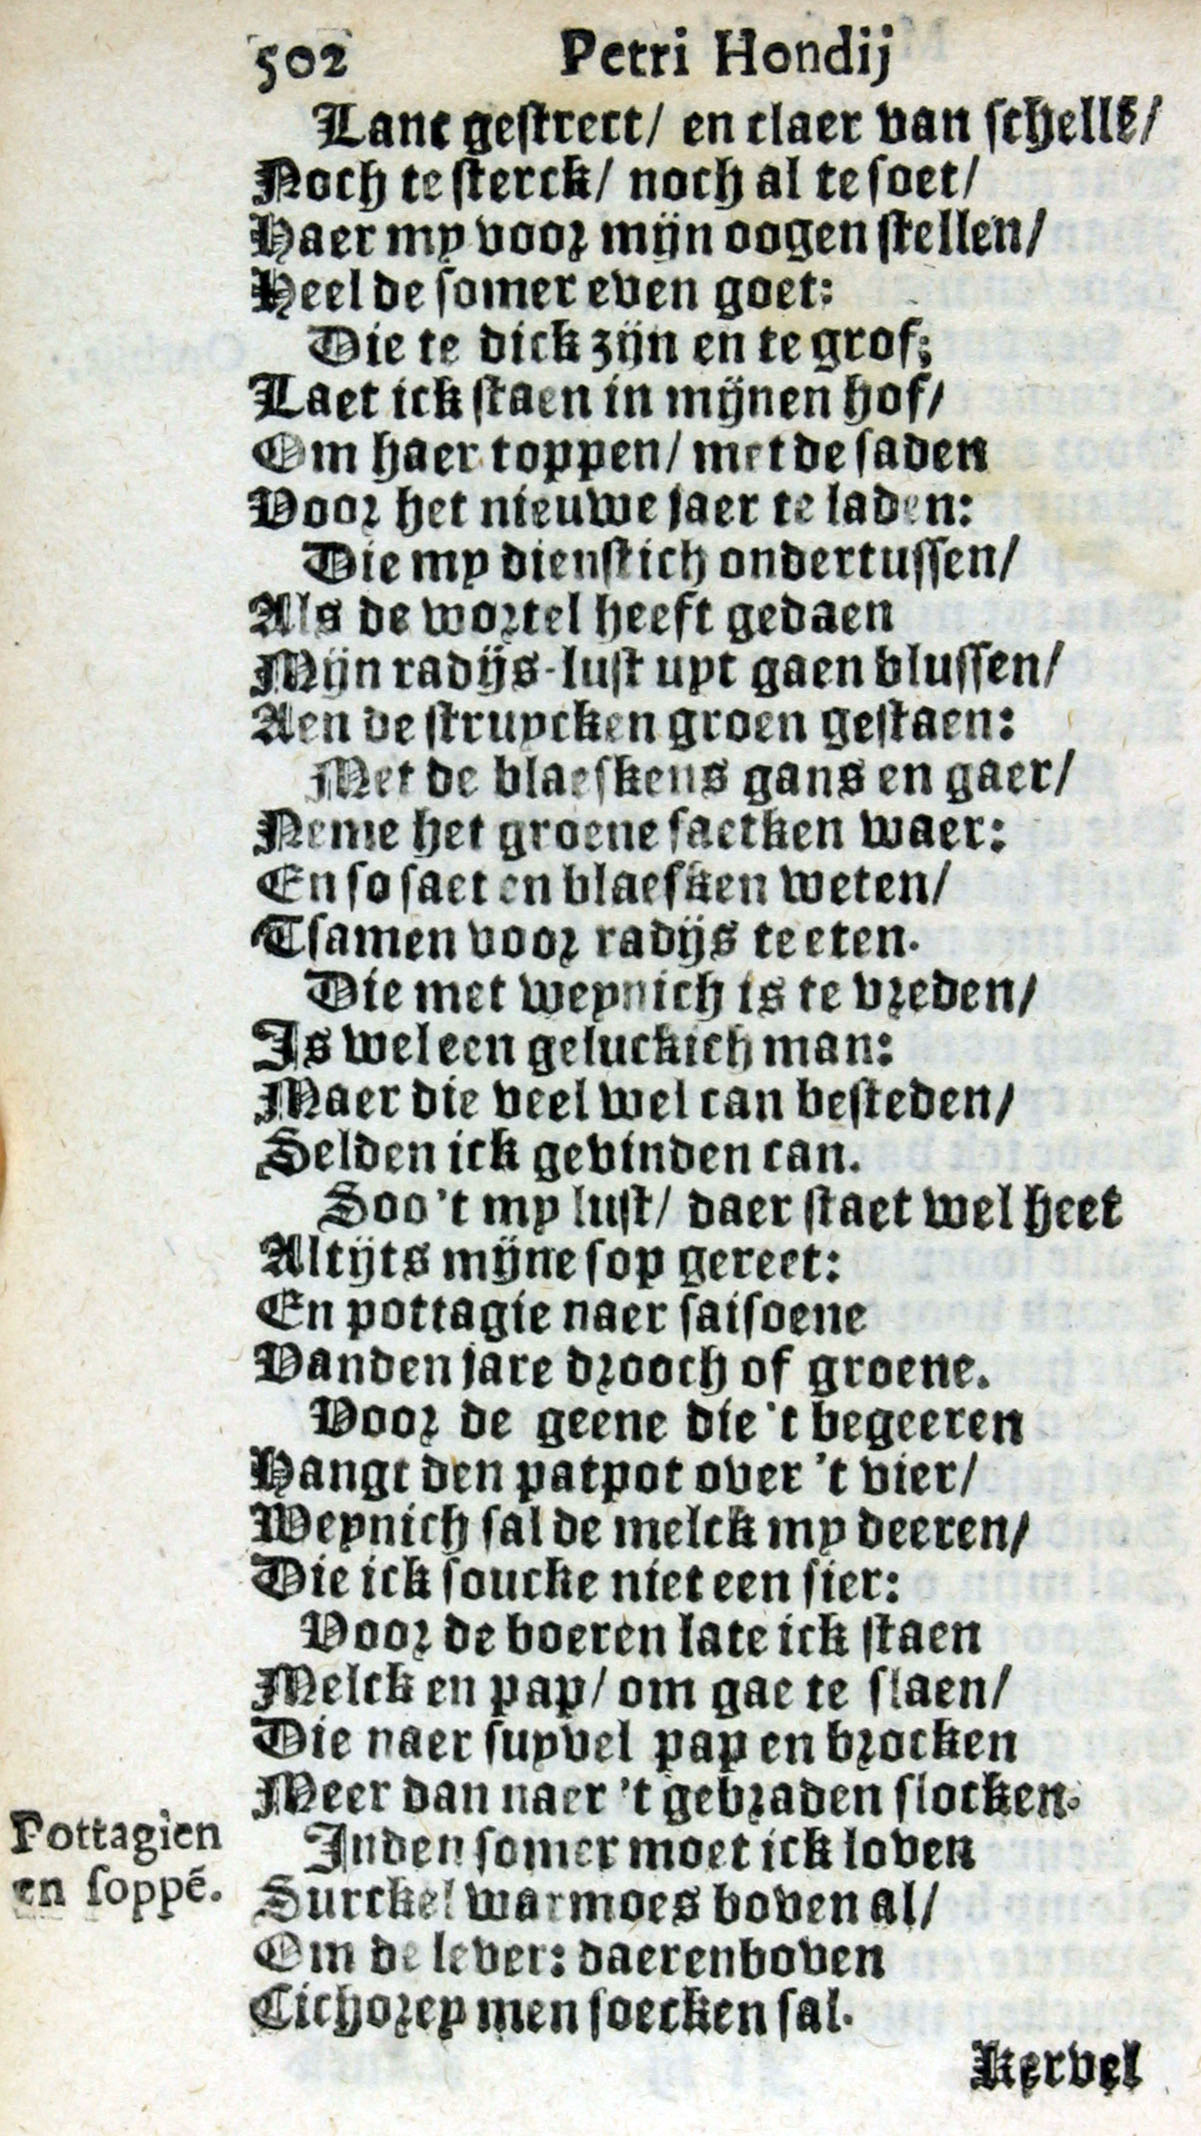 502 Petri Hondij
Lanc gestrect/ en claer van schellē/
Noch te sterck/ noch al te soet/
Haer my voor mijn oogen stellen/
Heel de somer even goet:
Die te dick zijn en te grof;
Laet ick staen in mijnen hof/
Om haer toppen/ met de saden
Voor het nieuwe jaer te laden:
Die my dienstich ondertussen/
Als de wortel heeft gedaen
Mijn radijs-lust uyt gaen blussen/
Aen de struycken groen gestaen:
Met de blaeskens gans en gaer/
Neme het groene saetken waer:
En so saet en blaesken weten/
Tsamen voor radijs te eten.
Die met weynich is te vreden/
Is wel een geluckich man:
Maer die veel wel can besteden/
Selden ick gevinden can.
Soo 't my lust/ daer staet wel heet
Altijts mijne sop gereet:
En pottagie naer saisoene
Vanden jare drooch of groene.
Voor de geene die 't begeeren
Hangt den patpot over 't vier/
Weynich sal de melck my deeren/
Die ick soucke niet een sier:
Voor de boeren late ick staen
Melck en pap/ om gae te slaen/
Die naer suyvel pap en brocken
Meer dan naer 't gebraden slocken.
Pottagien
en soppē.
Inden somer moet ick loven
Surckel warmoes boven al/
Om de lever: daerenboven
Cichorey men soecken sal.
Kervel